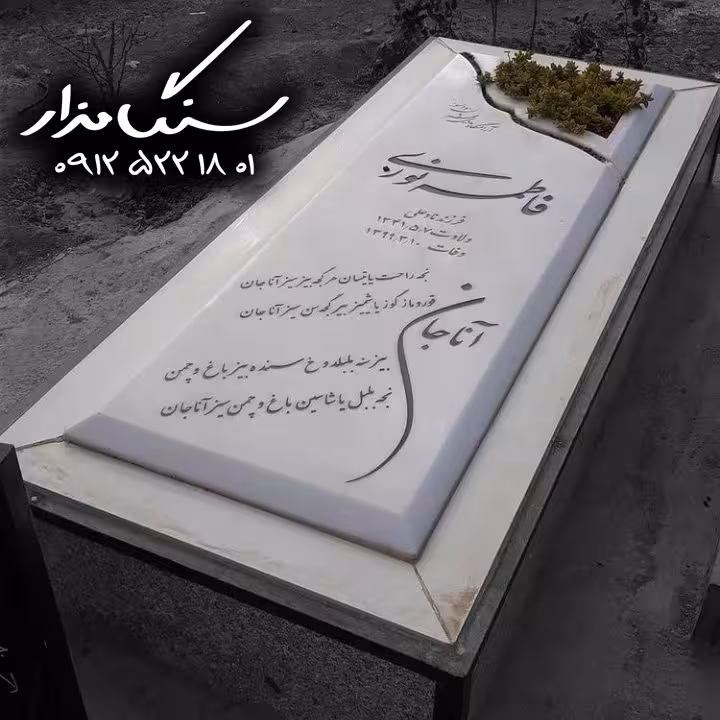 سنگ مزار
۰۹۱۲ ۵۲۲ ۱۸ ۰۱
فاطمه نوری
فرزند نادعلی
ولادت ۱۳۳۱،۵،۷
وفات ۱۳۹۹،۳،۱۰
نجه راحت یاتیسان هر گجه بیز سیز آناجان
قورو ماز گوز یاشیمیز بیر گجه سن سیز آناجان
آناجان
بیز نه بلبلدوخ سنده بیزه باغ و چمن
نجه بلبل یاشاسین باغ و چمن سیز آناجان